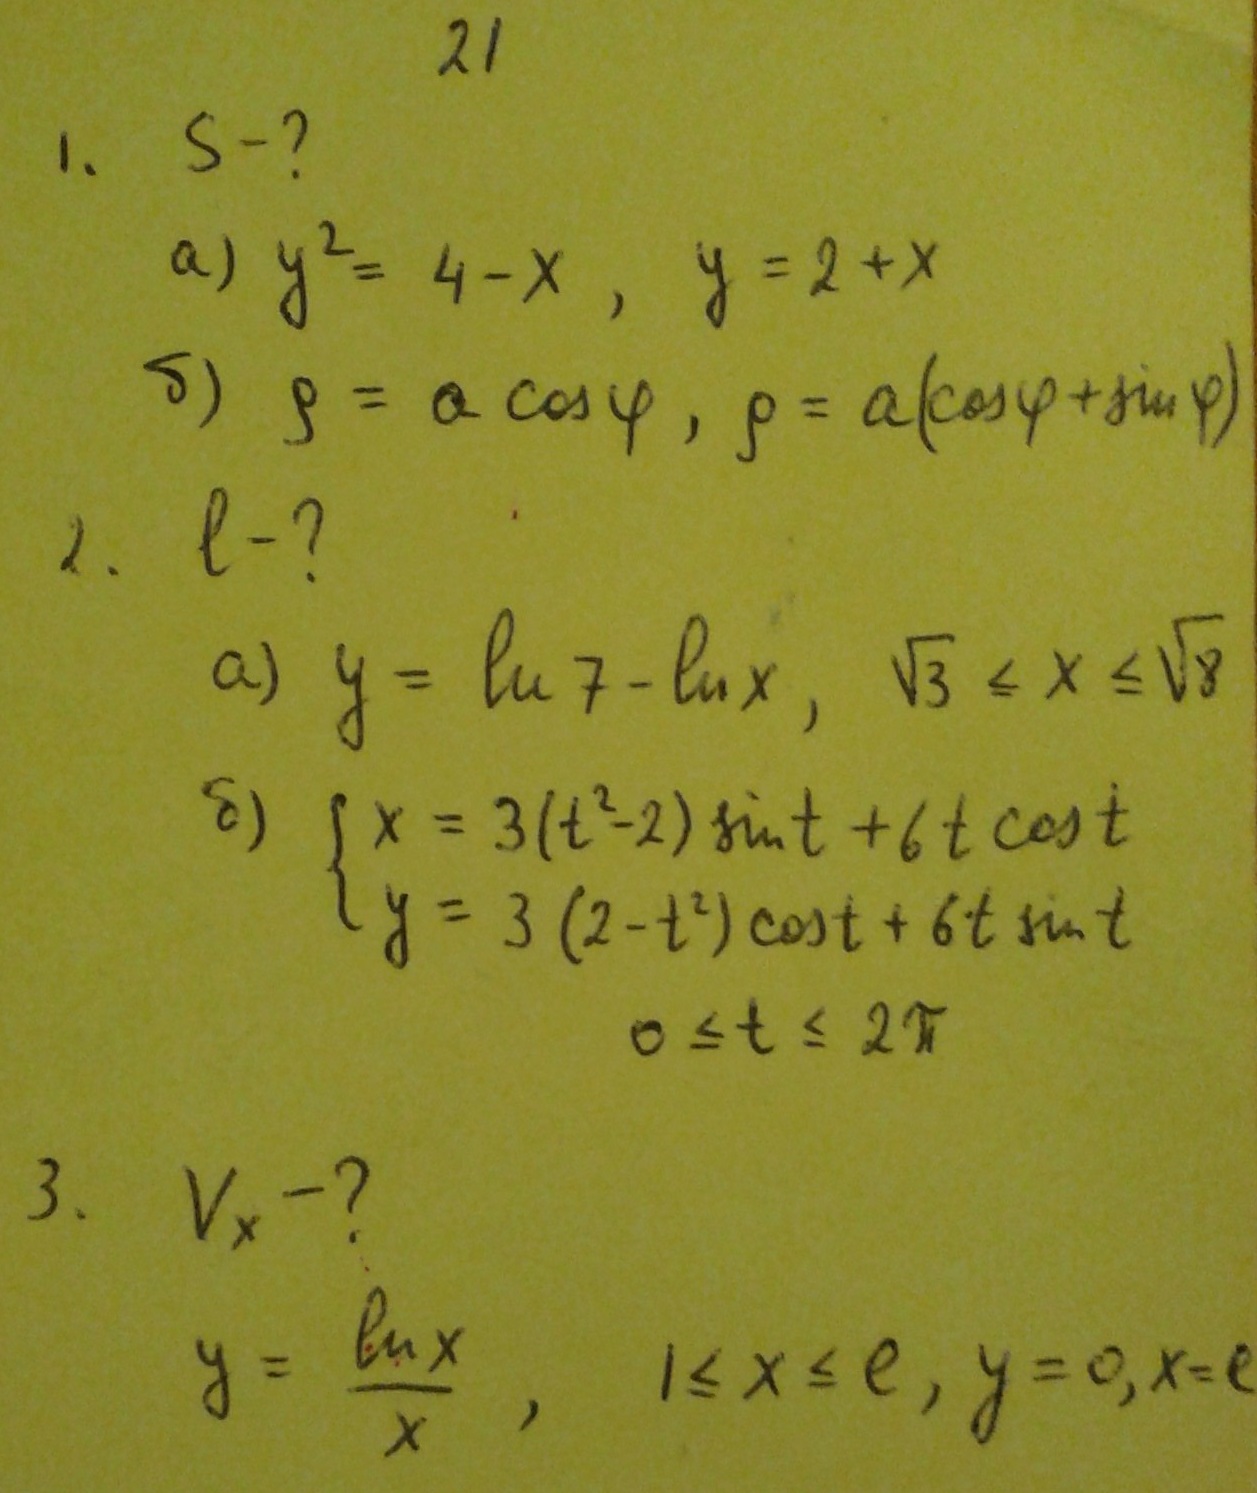 21
1. S-?
а) y² = 4-x, y = 2+x
б) ρ = a cosφ, ρ = a(cosφ+sinφ)
2. l-?
а) y = ln7-lnx, √3 ≤ x ≤ √8
б) { x = 3(t²-2)sint + 6t cost
y = 3(2-t²)cost + 6t sint
0 ≤ t ≤ 2π
3. Vx-?
y = lnx/x, 1 ≤ x ≤ e, y = 0, x=e